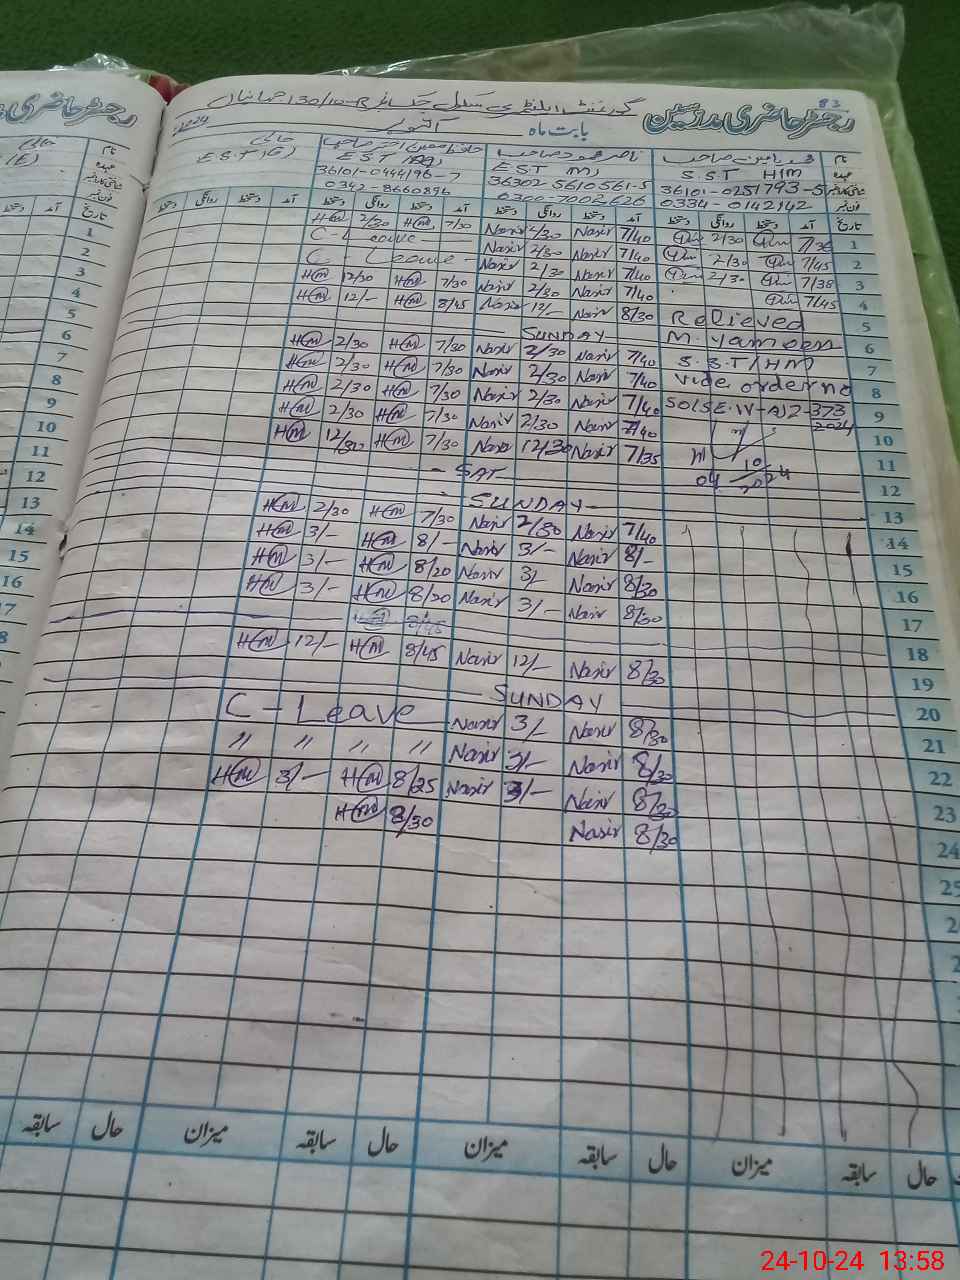 83
رجسٹر حاضری مدرسین گورنمنٹ ایلیمنٹری سکول 130/10-R جہانیاں
بابت ماہ اکتوبر 2024
نام صاحب ناصر محمود صاحب صاحب خالی
عہدہ S.S.T HIM E S T E S T E.S.T (G)
36101-0251793-5 36302-5610561-5 36101-0444196-7
فون نمبر 0334-0142142 0300-7002626 0342-8660896
تاریخ آمد دستخط روانگی دستخط آمد دستخط روانگی دستخط آمد دستخط روانگی دستخط آمد دستخط روانگی دستخط
1 2/30 7/40 Nasir 2/30 Nasir 7/30 HM 2/30 HM
2 7/45 2/30 7/40 Nasir 2/30 Nasir C-Leave
3 7/38 2/30 7/40 Nasir 2/30 Nasir C-Leave
4 7/45 7/40 Nasir 2/30 Nasir 7/30 HM 12/30 HM
5 Relieved 8/30 Nasir 12/- Nasir 8/45 HM 12/- HM
6 M. yameen SUNDAY
7 S.S.T/HM 7/40 Nasir 2/30 Nasir 7/30 HM 2/30 HM
8 vide order no 7/40 Nasir 2/30 Nasir 7/30 HM 2/30 HM
9 SO(SE.IV-A)2-373 7/40 Nasir 2/30 Nasir 7/30 HM 2/30 HM
2024
10 7/40 Nasir 2/30 Nasir 7/30 HM 2/30 HM
11 04 10 2024 7/35 Nasir 12/30 Nasir 7/30 HM 12/30 HM
12 - SAT -
13 - SUNDAY -
14 7/40 Nasir 2/30 Nasir 7/30 HM 2/30 HM
15 8/- Nasir 3/- Nasir 8/- HM 3/- HM
16 8/30 Nasir 3/- Nasir 8/20 HM 3/- HM
17 8/30 Nasir 3/- Nasir 8/20 HM 3/- HM
18 HM 8/45
19 8/30 Nasir 12/- Nasir 8/45 HM 12/- HM
20 SUNDAY
21 8/30 Nasir 3/- Nasir C-Leave
22 8/30 Nasir 3/- Nasir 〃 〃 〃 〃
23 8/30 Nasir 3/- Nasir 8/25 HM 3/- HM
24 8/30 Nasir 8/30 HM
25
حال سابقہ میزان حال سابقہ میزان حال سابقہ میزان حال سابقہ
رجسٹر حاضری
(E)
نام
عہدہ
تاریخ
1
2
3
4
5
6
7
8
9
10
11
12
13
14
15
16
24-10-24 13:58